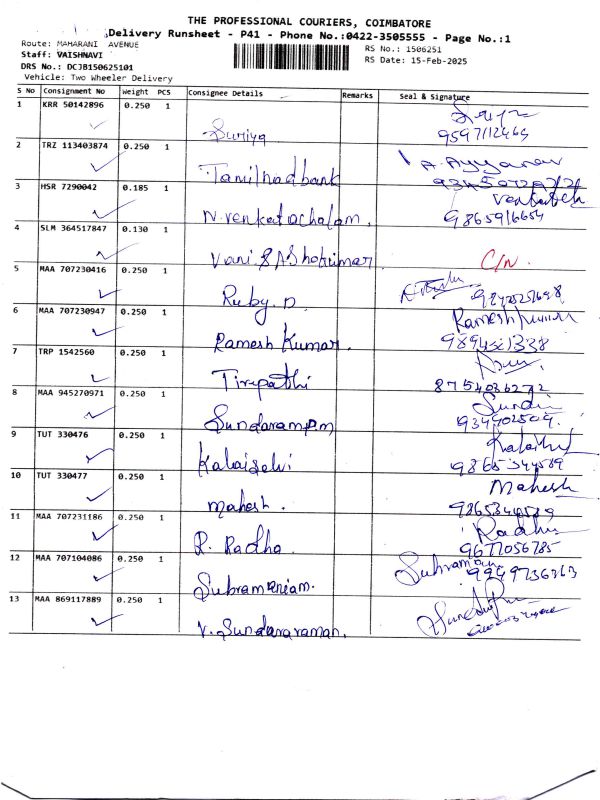 THE PROFESSIONAL COURIERS, COIMBATORE
Delivery Runsheet - P41 - Phone No.:0422-3505555 - Page No.:1
Route: MAHARANI AVENUE
RS No.: 1506251
Staff: VAISHNAVI
RS Date: 15-Feb-2025
DRS No.: DCJB150625101
Vehicle: Two Wheeler Delivery
S No Consignment No Weight PCS Consignee Details Remarks Seal & Signature
1 KRR 50142896 0.250 1
Suriya 9597112464
2 TRZ 113403874 0.250 1
Tamilnad bank A. Ayyanar
3 HSR 7290042 0.185 1
N. venkatachalam, Venkatesh 9865916654
4 SLM 364517847 0.130 1
Vani & Ashokumar C/N.
5 MAA 707230416 0.250 1
Ruby. D
6 MAA 707230947 0.250 1
Ramesh Kumar. Ramesh Kumar
7 TRP 1542560 0.250 1
Tirupathi 8754036272
8 MAA 945270971 0.250 1
Sundaram Pm 934902509.
9 TUT 330476 0.250 1
Kalaiselvi 9865344589
10 TUT 330477 0.250 1
Mahesh. Mahesh
11 MAA 707231186 0.250 1
R. Radha. Radha 9677056785
12 MAA 707104086 0.250 1
Subramaniam. 9949736363
13 MAA 869117889 0.250 1
V. Sundararaman.